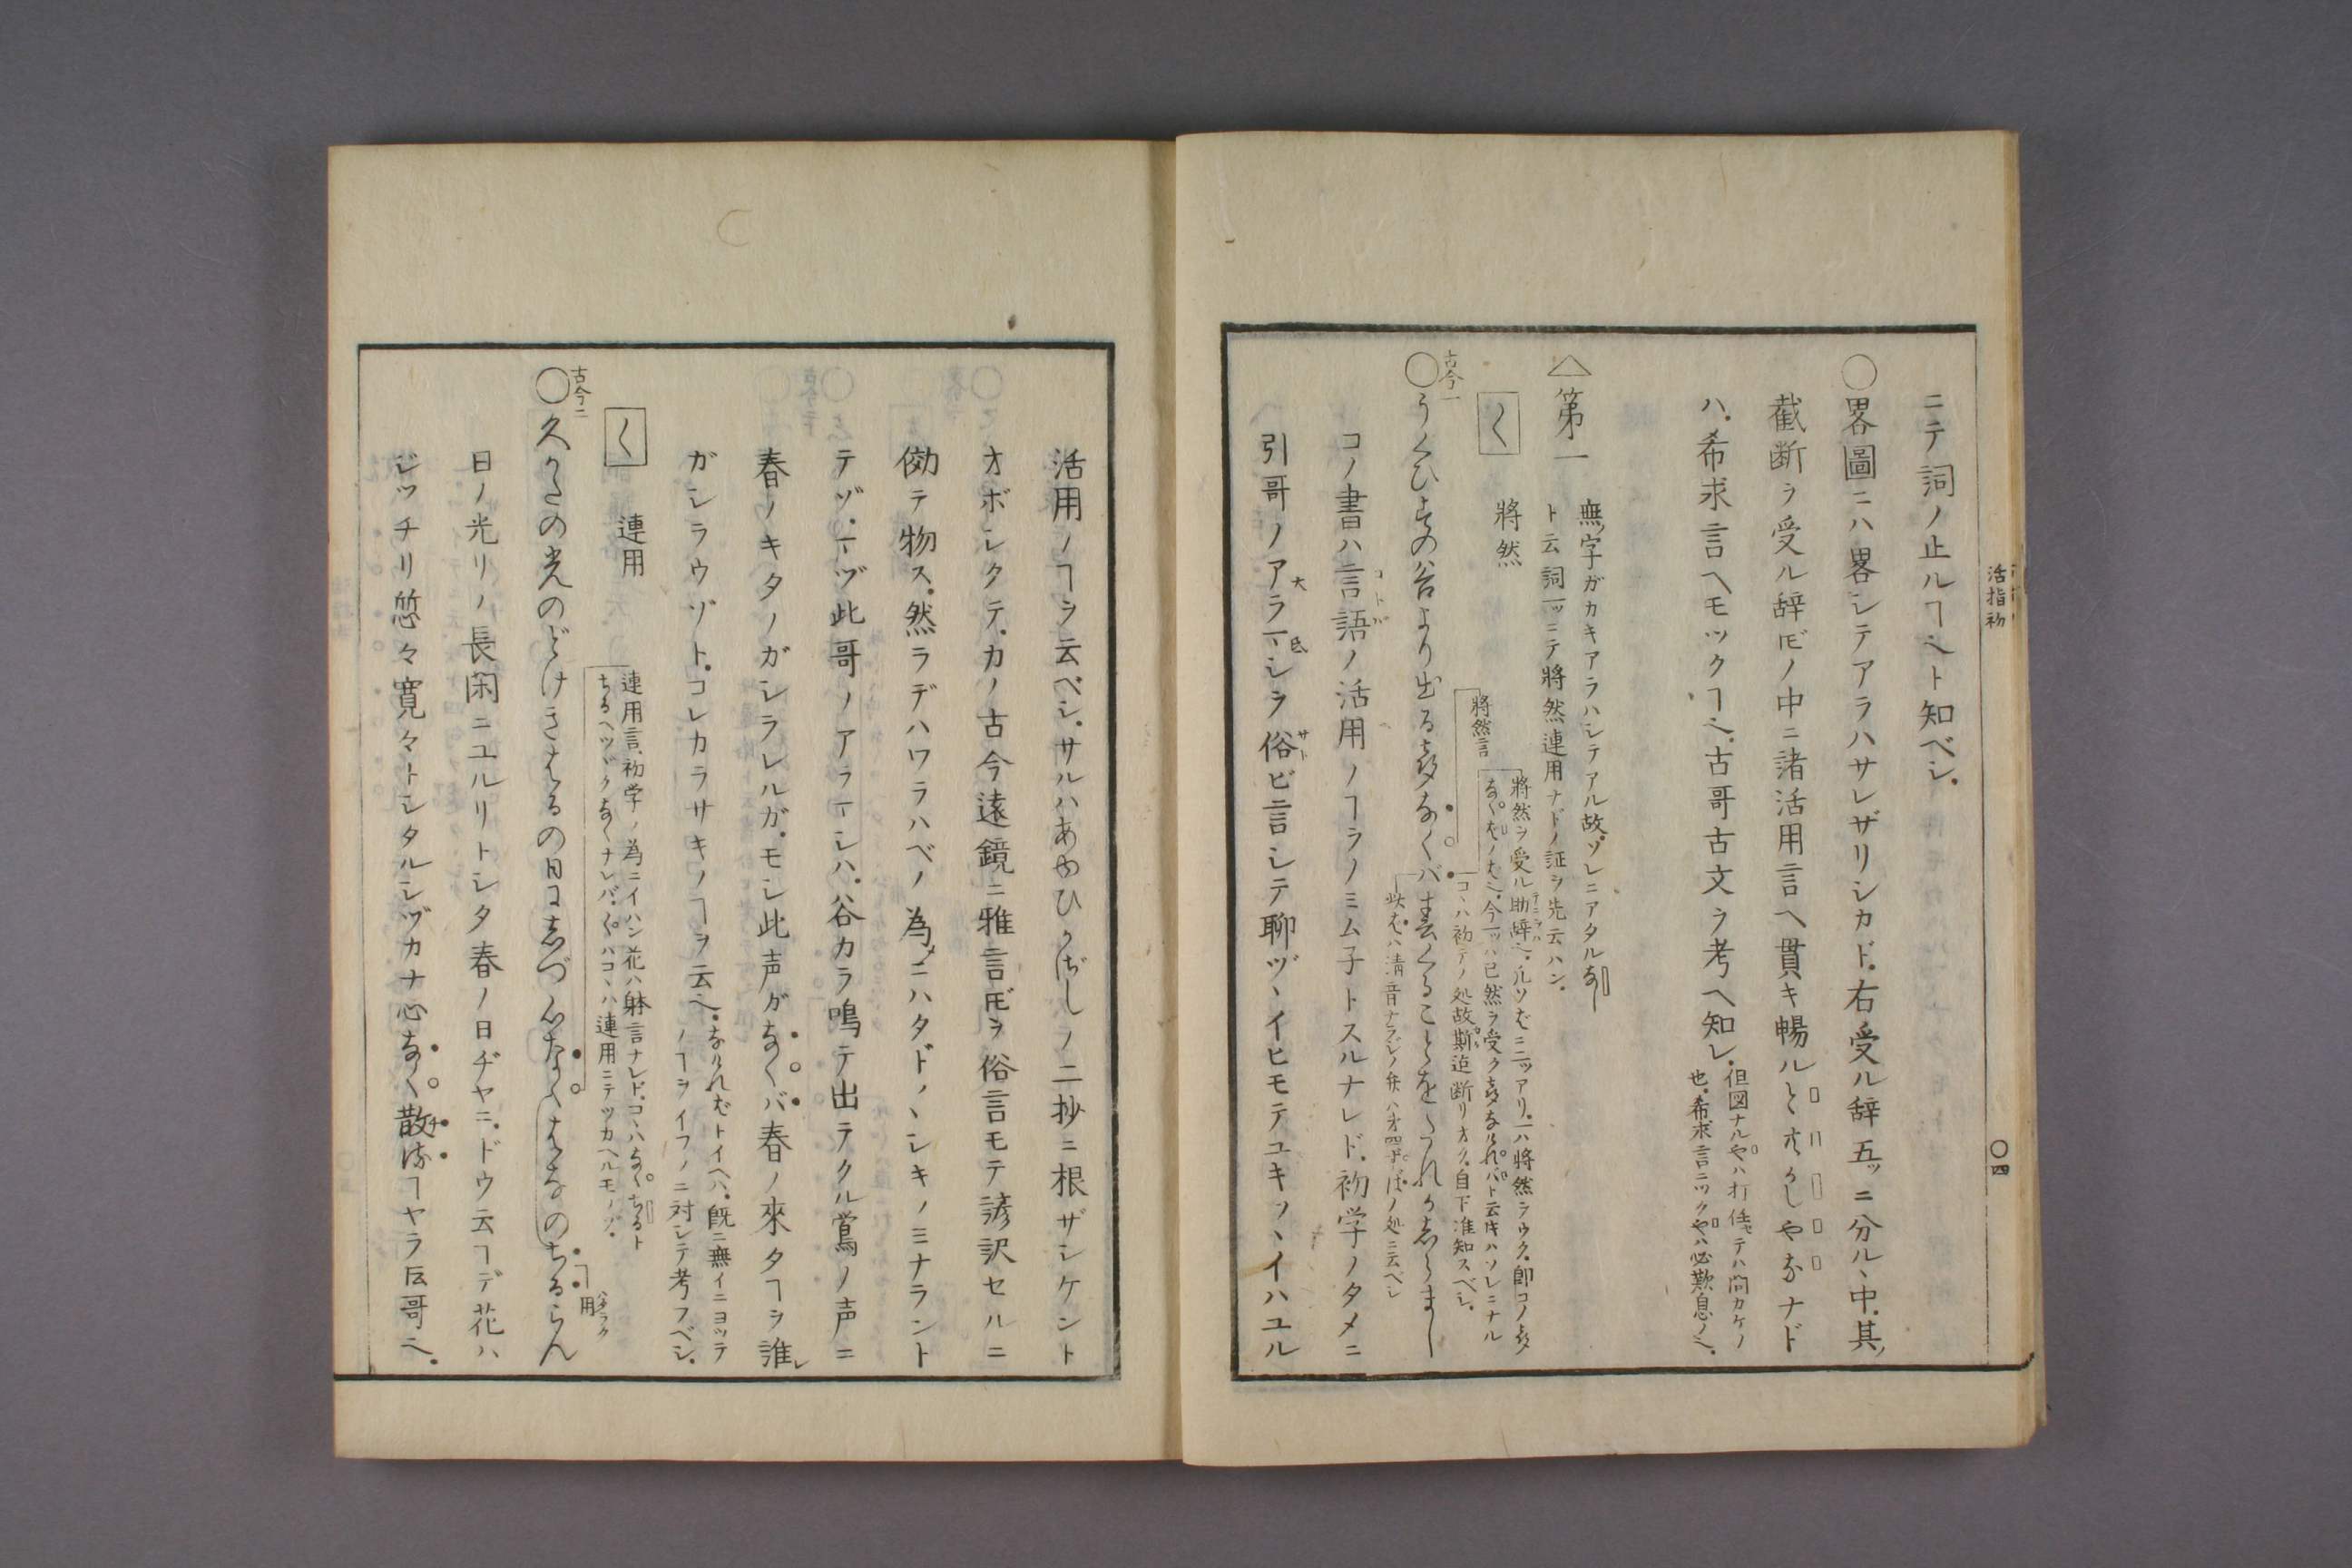 ニテ詞ノ止ルヿヘト知ベシ.
○畧圖ニハ畧シテアラハサレザリシカド.右受ル辞五ッニ分ル、中.其ノ
截断ヲ受ル辞𪜈ノ中ニ諸活用言ヘ貫キ暢ル
ハ.希求言ヘモツクヿヘ.古哥古文ヲ考ヘ知レ.
但図ナルやハ打任セテハ問カケノ
也.希求言ニツクやハ必歎息ノミ.
△第一
無ノ字ガカキアラハシテアル故.ソレニアタルなし
ト云詞一ッニテ將然連用ナドノ証ヲ先云ハン.
く 將然
將然言
將然ヲ受ル助辞ヘ.凡ソばニ二ッアリ.一ハ將然ヲウク.即コノ
コヽハ初テノ処故斯迫断リオク.自下准知スベシ.
古今一
○うくひすの谷より出る声なくバ春くることをたれかしらまし
コノ書ハ言語ノ活用ノヿヲノミムネトスルナレド.初学ノタメニ
引哥ノアラマシヲ俗ビ言シテ聊ヅヽイヒモテユキツヽイハユル
活指初
○四
活用ノヿヲ云ベシ.サルハあゆひかざしノ二抄ニ根ザシケント
オボシクテ.カノ古今遠鏡ニ雅言𪜈ヲ俗言モテ諺訳セルニ
効テ物ス.然ラデハワラハベノ為メニハタドノヽシキノミナラント
テゾ.マヅ此哥ノアラマシハ.谷カラ鳴テ出テクル鴬ノ声ニ
春ノキタノガシラレルガ.モシ此声ガなくバ春ノ來タヿヲ誰レ
ガシラウゾト.コレカラサキノヿヲ云ヘ.
なければトイヘハ.既ニ無イニヨッテ
ノヿヲイフノニ対シテ考フベシ.
く 連用
連用言.初学ノ為ニイハン花ハ躰言ナレド.コヽハなくちると
ちるヘツヾクなくナレバ.くハコヽハ連用ニテツカヘルモノゾ.
古今二
○久かたの光のどけきはるの日にしづ心なくはなのちるらん
用 ハタラク
日ノ光リノ長閑ニユルリトシタ春ノ日ヂヤニ.ドウ云ヿデ花ハ
ジッチリ悠々寛々トシタルシヅカナ心なく散るヿヤラト云哥ヘ.